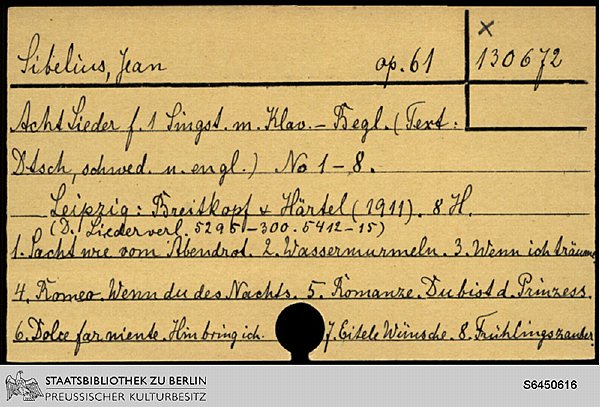 x
Sibelius, Jean op. 61 130672
Acht Lieder f. 1 Singst. m. Klav. – Begl. (Text:
Dtsch, schwed. u. engl.) No 1 – 8.
Leipzig: Breitkopf & Härtel (1911). 8 H.
(D. Liederverl. 5295–300. 5412–15)
1. Sacht wie vom Abendrot. 2. Wassermurmeln. 3. Wenn ich träume
4. Romeo. Wenn du des Nachts. 5. Romanze. Du bist d. Prinzess.
6. Dolce far niente. Hinbring ich. 7. Eitele Wünsche. 8. Frühlingszauber.
STAATSBIBLIOTHEK ZU BERLIN
PREUSSISCHER KULTURBESITZ
S6450616